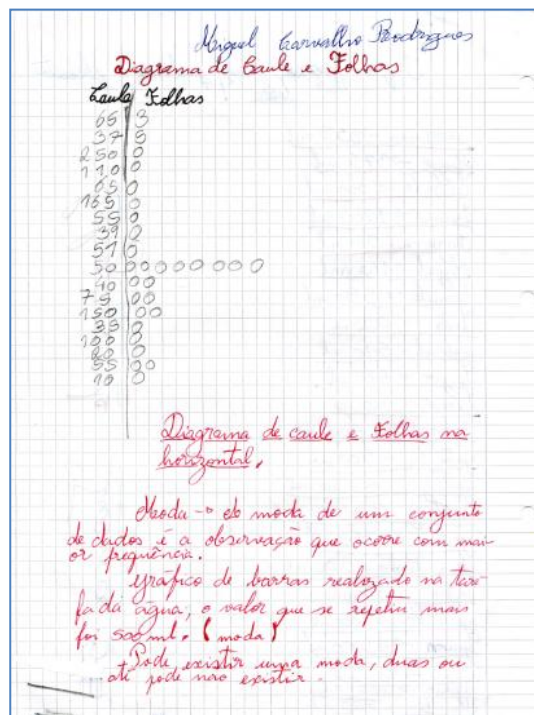 Miguel Carvalho Rodrigues
Diagrama de Caule e Folhas
Caule Folhas
65 3
37 5
250 0
110 0
65 0
165 0
55 0
39 0
51 0
50 00000000
40 00
75 00
150 00
35 0
100 0
20 0
55 00
10 0
Diagrama de caule e Folhas na
horizontal.
Moda → moda de um conjunto
de dados é a observação que ocorre com mai
or frequência.
gráfico de barras realizado na tare
fa da água, o valor que se repetiu mais
foi 500 ml. (moda)
Pode existir uma moda, duas ou
até pode não existir.